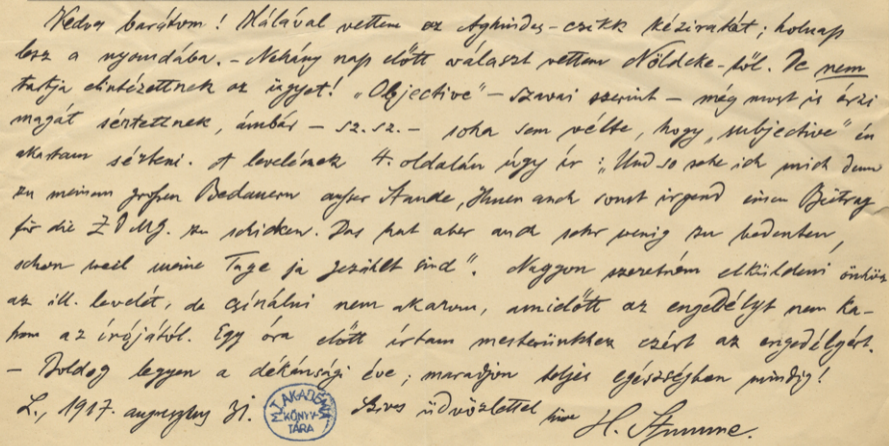 Kedves barátom! Hálával vettem az Aghnides-czikk kéziratát; holnap
lesz a nyomdába. – Néhány nap előtt választ vettem Nöldeke-től. De nem
tartja elintézettnek az ügyet! „Objective" – szavai szerint – még most is érzi
magát sértettnek, ámbár – sz. sz. – soha sem vélte, hogy „subjective" én
akartam sérteni. A levelének 4. oldalán úgy ír: „Und so sehe ich mich denn
zu meinem großen Bedauern außer Stande, Ihnen auch sonst irgend einen Beitrag
für die ZDMG. zu schicken. Das hat aber auch sehr wenig zu bedeuten,
schon weil meine Tage ja gezählt sind". Nagyon szeretném elküldeni önhöz
az ill. levelét, de csinálni nem akarom, amidőtt az engedélyt nem ka-
pom az írójától. Egy óra előtt írtam mesterünkhez ezért az engedélyért.
– Boldog legyen a dékánsági éve; maradjon teljes egészségben mindig!
L., 1917. augusztus 31. Szives üdvözlettel híve
H. Stumme.
M. T. AKADÉMIA
KÖNYV-
TÁRA